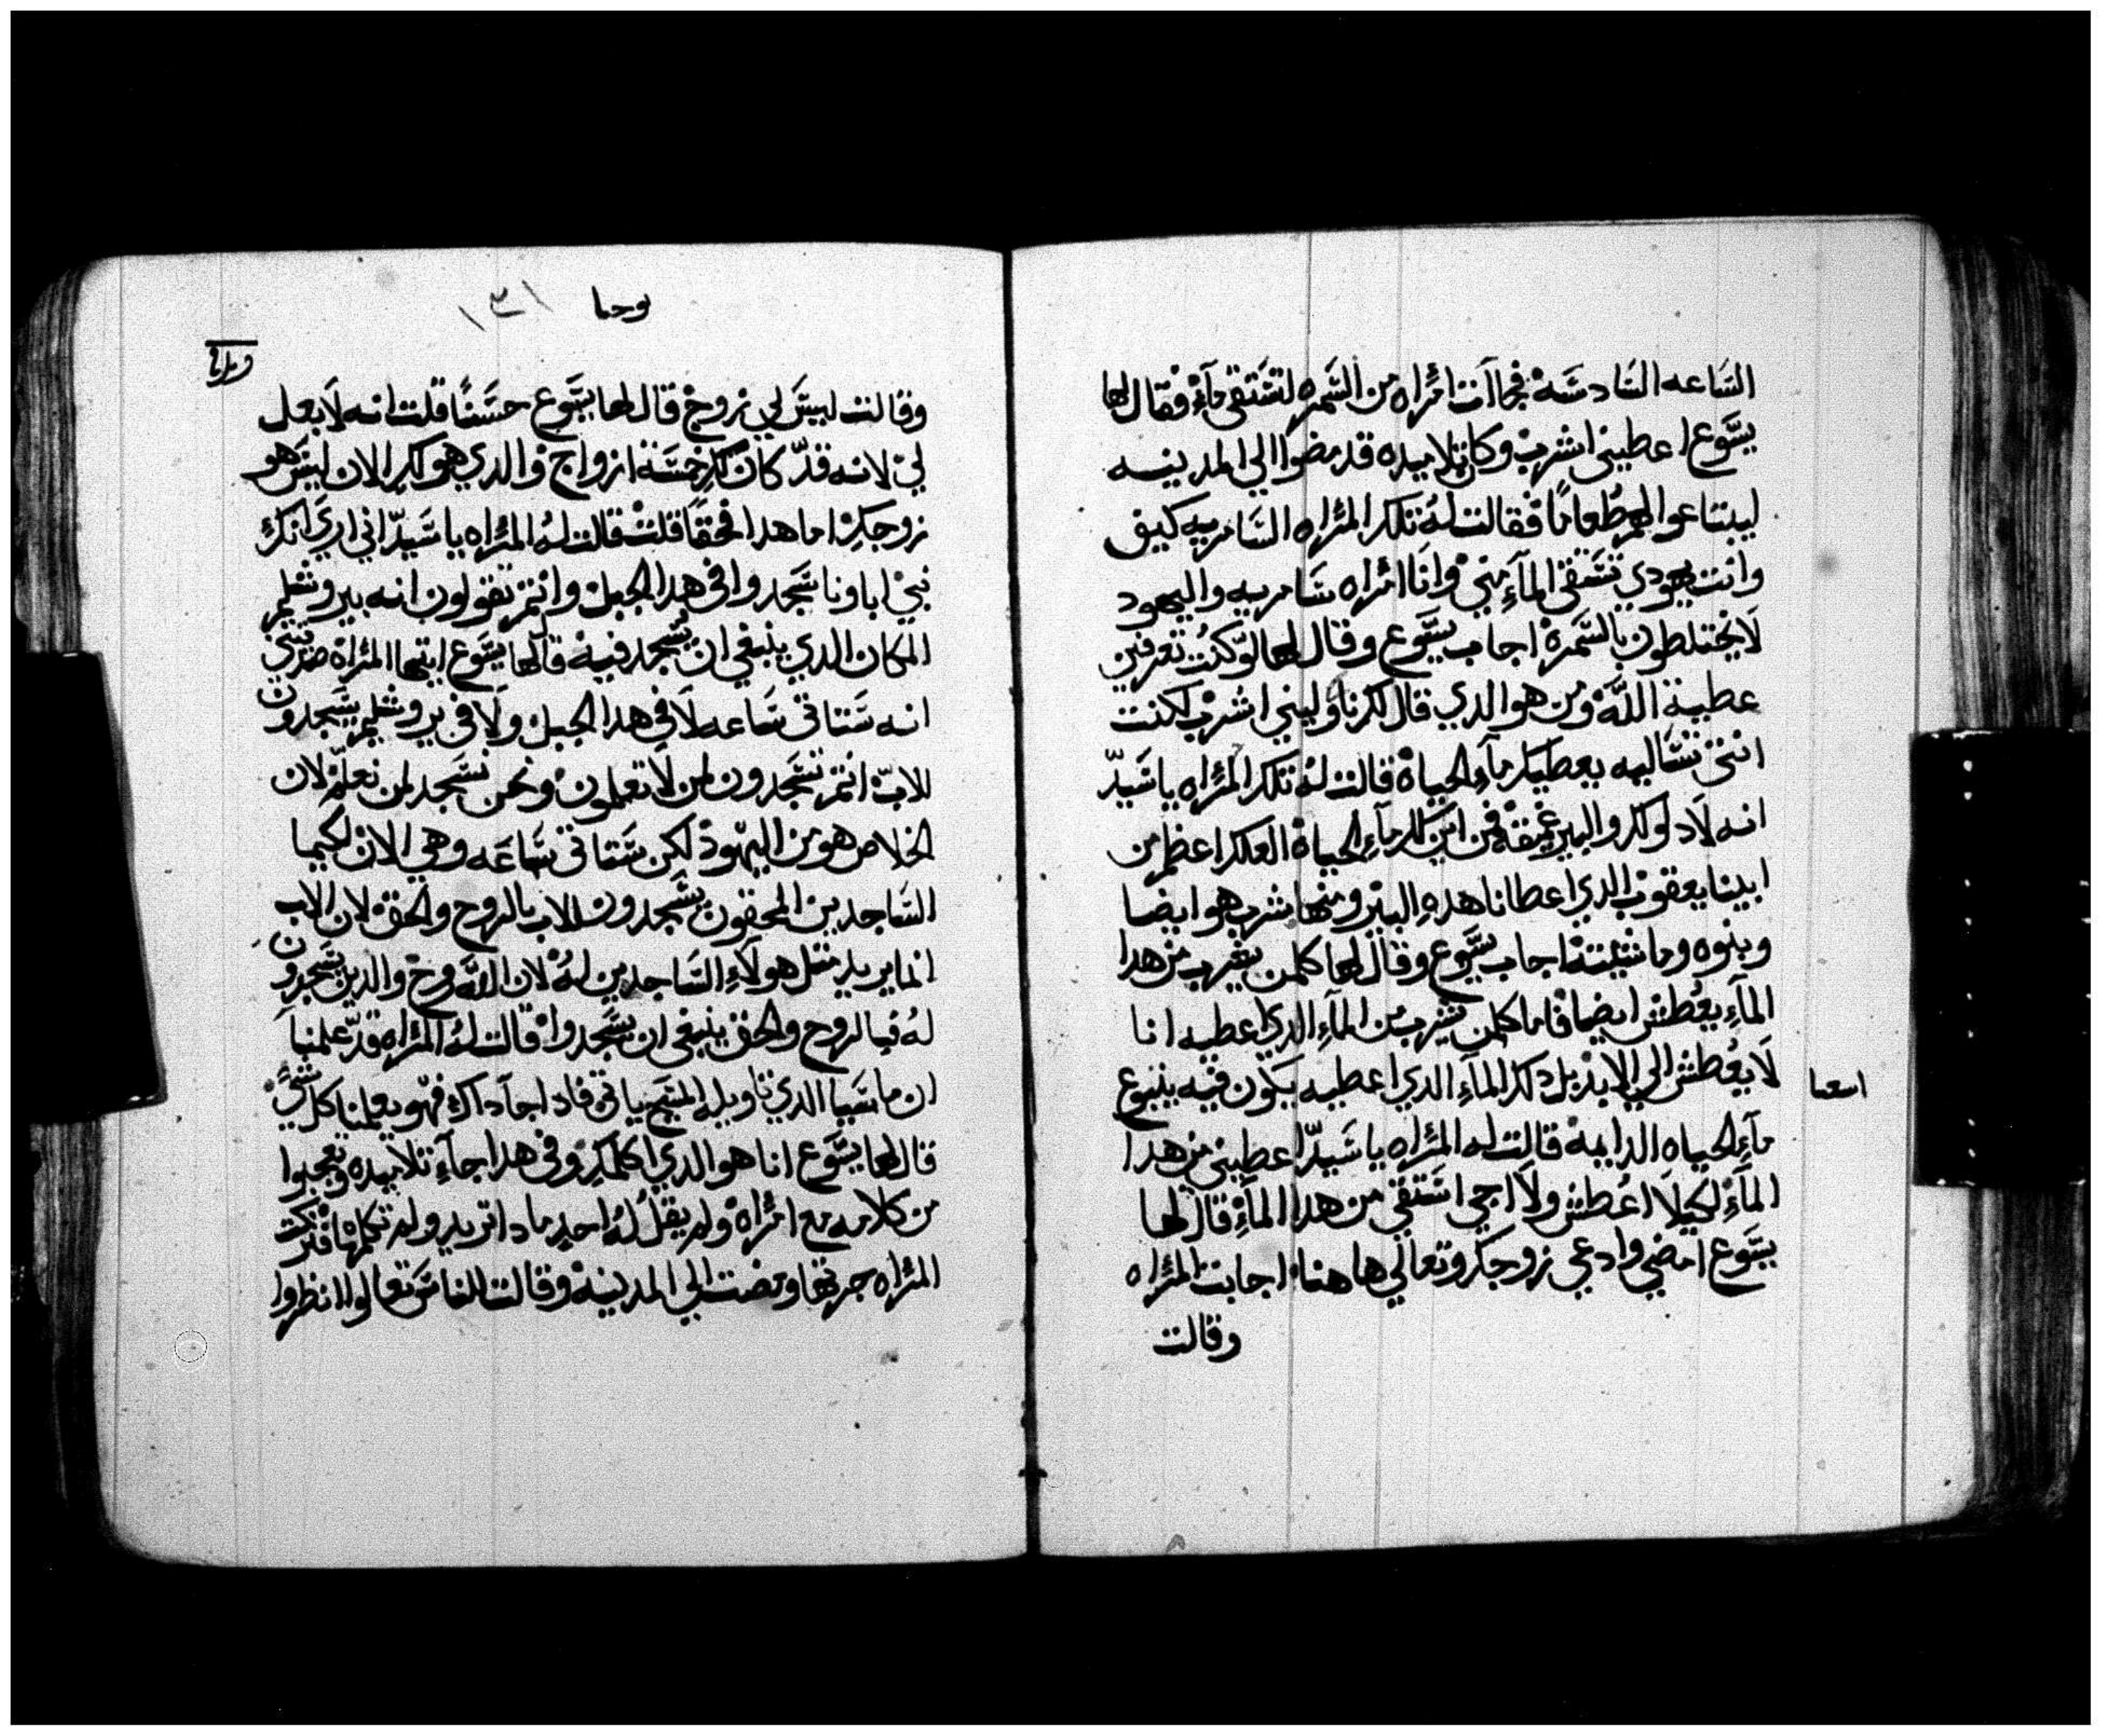 الساعه السادسه فجاات امراه من السمره لتستقى مآء فقال لها
يسوع اعطيني اشرب وكان تلاميده قد مضوا الي المدينه
ليبتاعوا لهم طعاما فقالت له تلك المراه السامريه كيف
وانت يهودي تستقي المآء مني وانا امراه سامريه واليهود
لا يختلطون بالسمره اجاب يسوع وقال لها لو كنت تعرفين
عطية الله ومن هو الدي قال لك ناوليني اشرب لكنت
انتي تساليه يعطيك مآء الحياه قالت له تلك المراه يا سيد
انه لا دلو لك والبير عميقه فمن اين لك مآء الحياه العلك اعظم من
ابينا يعقوب الدي اعطانا هده البير ومنها شرب هو ايضا
وبنوه وماشيته اجاب يسوع وقال لها كلمن يشرب من هدا
المآء يعطش ايضا فاما كلمن يشرب من المآء الدي اعطيه انا
لا يعطش الي الابد بل دلك المآء الدي اعطيه يكون فيه ينبوع
مآء الحياه الدايمه قالت له المراه يا سيد اعطيني من هدا
المآء لكيلا اعطش ولا اجي استقي من هدا المآء قال لها
يسوع امضي وادعي زوجك وتعالي هاهنا اجابت المراه
وقالت
يوحنا ١٣١
وقالت ليس لي زوج قال لها يسوع حسنا قلت انه لا بعل
لي لانه قد كان لك خمسة ازواج والدي هو لك الان ليس هو
زوجك اما هدا فحقا قلت قالت له المراه يا سيد اني اري انك
نبي اباونا سجدوا في هدا الجبل وانتم تقولون انه يروشليم
المكان الدي ينبغي ان يسجد فيه قال لها يسوع ايتها المراه صدقيني
انه ستاتي ساعه لا في هدا الجبل ولا في يروشليم يسجدون
للاب انتم تسجدون لمن لا تعلمون ونحن نسجد لمن نعلم لان
الخلاص هو من اليهود لكن ستاتي ساعه وهي الان لكيما
الساجدين المحقون يسجدون للاب بالروح والحق لان الاب
انما يريد مثل هولآء الساجدين له لان الله روح والدين يسجدون
له فبالروح والحق ينبغي ان يسجدوا قالت له المراه قد علمنا
ان ماسيا الدي تاويله المسيح ياتي فادا جآ داك فهو يعلمنا كل شي
قال لها يسوع انا هو الدي اكلمك وفي هدا جآء تلاميده وتعجبوا
من كلامه مع امراه ولم يقل له احد مادا تريد ولم تكلمها فتركت
المراه جرتها ومضت الي المدينه وقالت للناس تعالوا انظروا